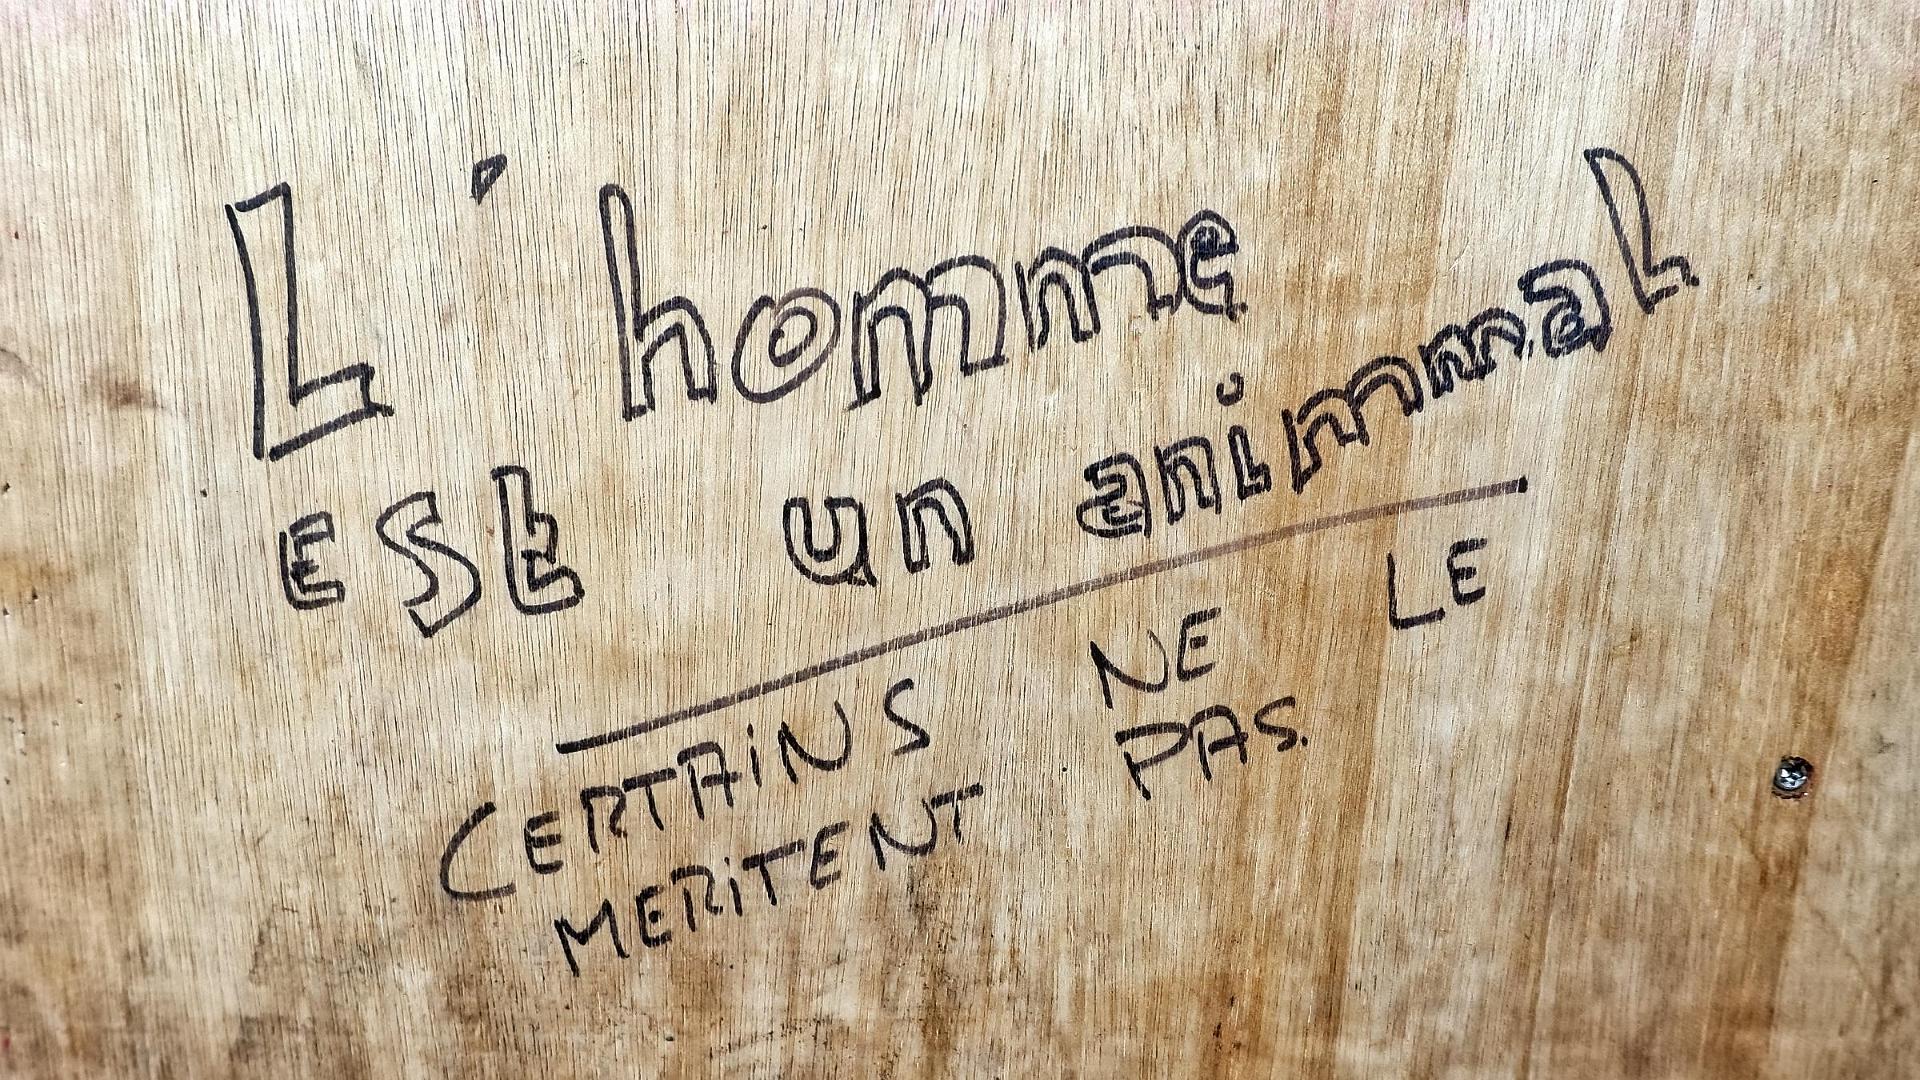 L'homme
ESt un animmal
CERTAiNS NE LE
MERiTENT PAS.